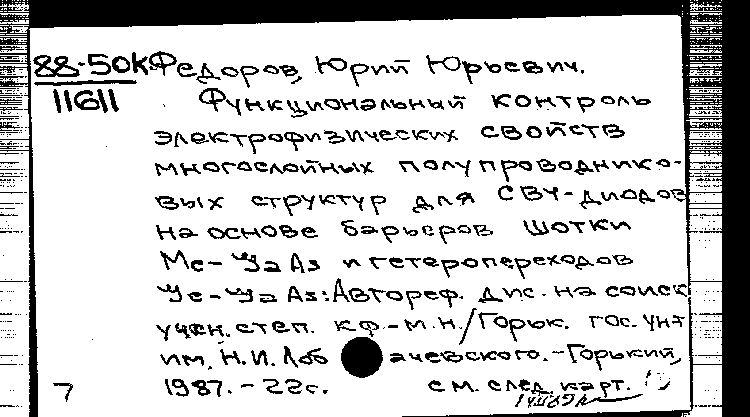 88-50К Федоров, Юрий Юрьевич.
11611 Функциональный контроль
электрофизических свойств
многослойных полупроводнико-
вых структур для СВЧ-диодов
на основе барьеров Шотки
Ме-GaAs и гетеропереходов
Ge-GaAs: Автореф. дис. на соиск
учен. степ. к.ф.-м.н./Горьк. гос. унт
им. Н.И. Лобачевского. - Горький,
1987. - 22с.
7 см. след. карт.